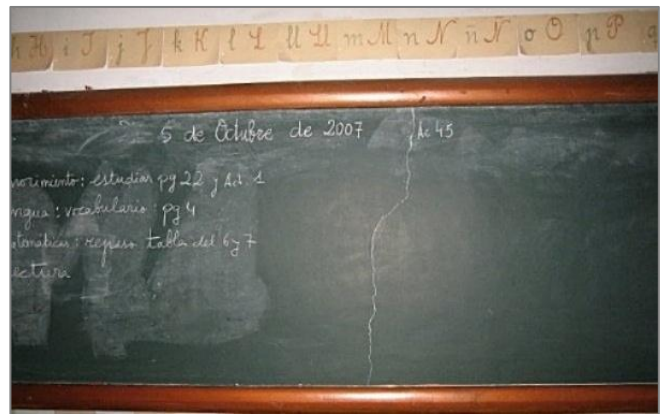 h H i I j J k K l L ll Ll m M n N ñ Ñ o O p P q
5 de Octubre de 2007
Ac 45
nocimiento: estudiar pg 22 y Act. 1
engua: vocabulario: pg 4
atemáticas: repaso tabla del 6 y 7
ectura